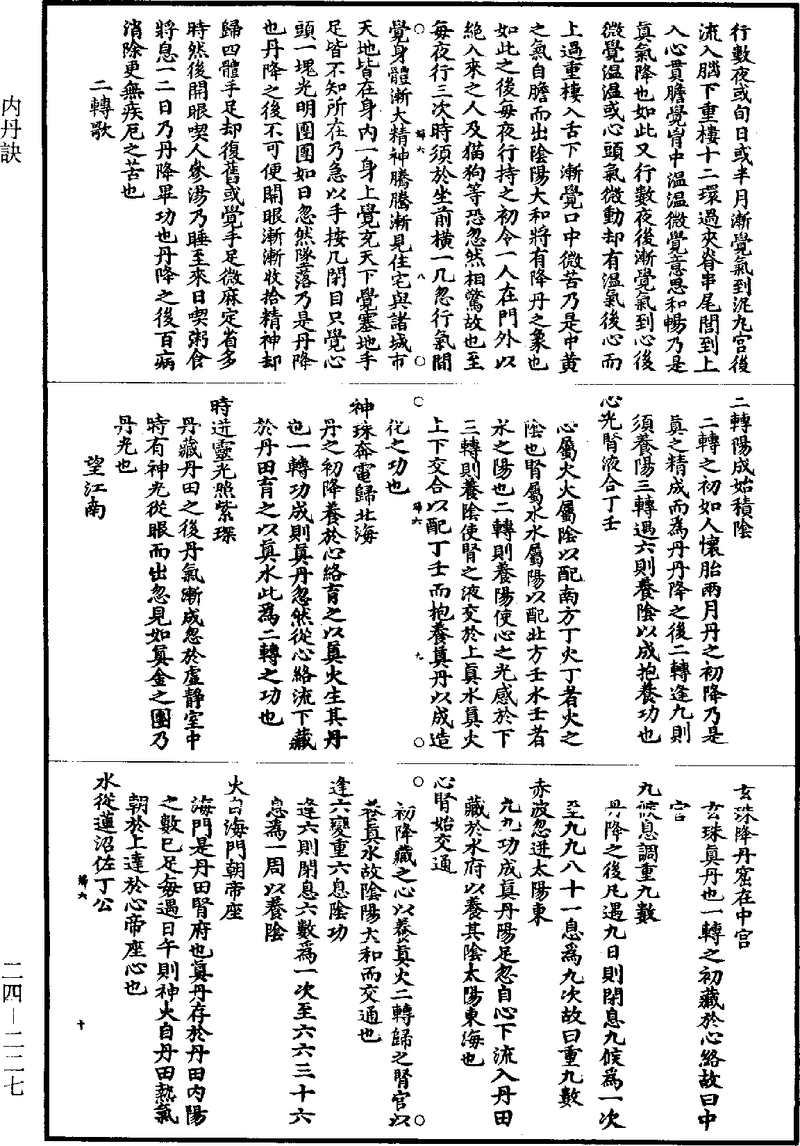 行數夜或旬日或半月漸覺氣到泥九宮後
流入腦下重樓十二環過夾脊串尾閭到上
入心貫膽覺胷中溫溫微覺意思和暢乃是
眞氣降也如此又行數夜後漸覺氣到心後
微覺溫溫或心頭氣微動却有溫氣後心而
上過重樓入舌下漸覺口中微苦乃是中黃
之氣自膽而出陰陽大和將有降丹之象也
如此之後每夜行持之初令一人在門外以
絕入來之人及猫狗等恐忽然相驚故也至
每夜行三次時須於坐前橫一几忽行氣間
覺身體漸大精神騰騰漸見住宅與諸城市
天地皆在身內一身上覺充天下覺塞地手
足皆不知所在乃急以手按几閉目只覺心
頭一塊光明團團如日忽然墜落乃是丹降
也丹降之後不可便開眼漸漸收拾精神却
歸四體手足却復舊或覺手足微麻定省多
時然後開眼喫人參湯乃睡至來日喫粥食
將息一二日乃丹降畢功也丹降之後百病
消除更無疾厄之苦也
二轉歌
二轉陽成始積陰
二轉之初如人懷胎兩月丹之初降乃是
眞之精成而爲丹丹降之後二轉逢九則
須養陽三轉遇六則養陰以成抱養功也
心光腎液合丁壬
心屬火火屬陰以配南方丁火丁者火之
陰也腎屬水水屬陽以配北方壬水壬者
水之陽也二轉則養陽使心之光感於下
三轉則養陰使腎之液交於上眞水眞火
上下交合以配丁壬而抱養眞丹以成造
化之功也
神珠奔電歸北海
丹之初降養於心絡育之以眞火生其丹
也一轉功成則眞丹忽然從心絡流下藏
於丹田育之以眞水此爲二轉之功也
時迸靈光照紫琛
丹藏丹田之後丹氣漸成忽於虛靜室中
時有神光從眼而出忽見如眞金之團乃
丹光也
望江南
玄珠降丹窟在中宮
玄珠眞丹也一轉之初藏於心絡故曰中
宮
九候息調重九數
丹降之後凡遇九日則閉息九候爲一次
至九九八十一息爲九次故曰重九數
赤波忽迸太陽東
九九功成眞丹陽足忽自心下流入丹田
藏於水府以養其陰太陽東海也
心腎始交通
初降藏之心以養眞火二轉歸之腎宮以
養眞水故陰陽大和而交通也
逢六變重六息陰功
逢六則閉息六數爲一次至六六三十六
息爲一周以養陰
火自海門朝帝座
海門是丹田腎府也眞丹存於丹田內陽
之數已足每遇日午則神火自丹田熱氣
朝於上達於心帝座心也
水從蓮沼佐丁公
內丹訣
二四—二二七
歸六
八
歸六
九
歸六
十